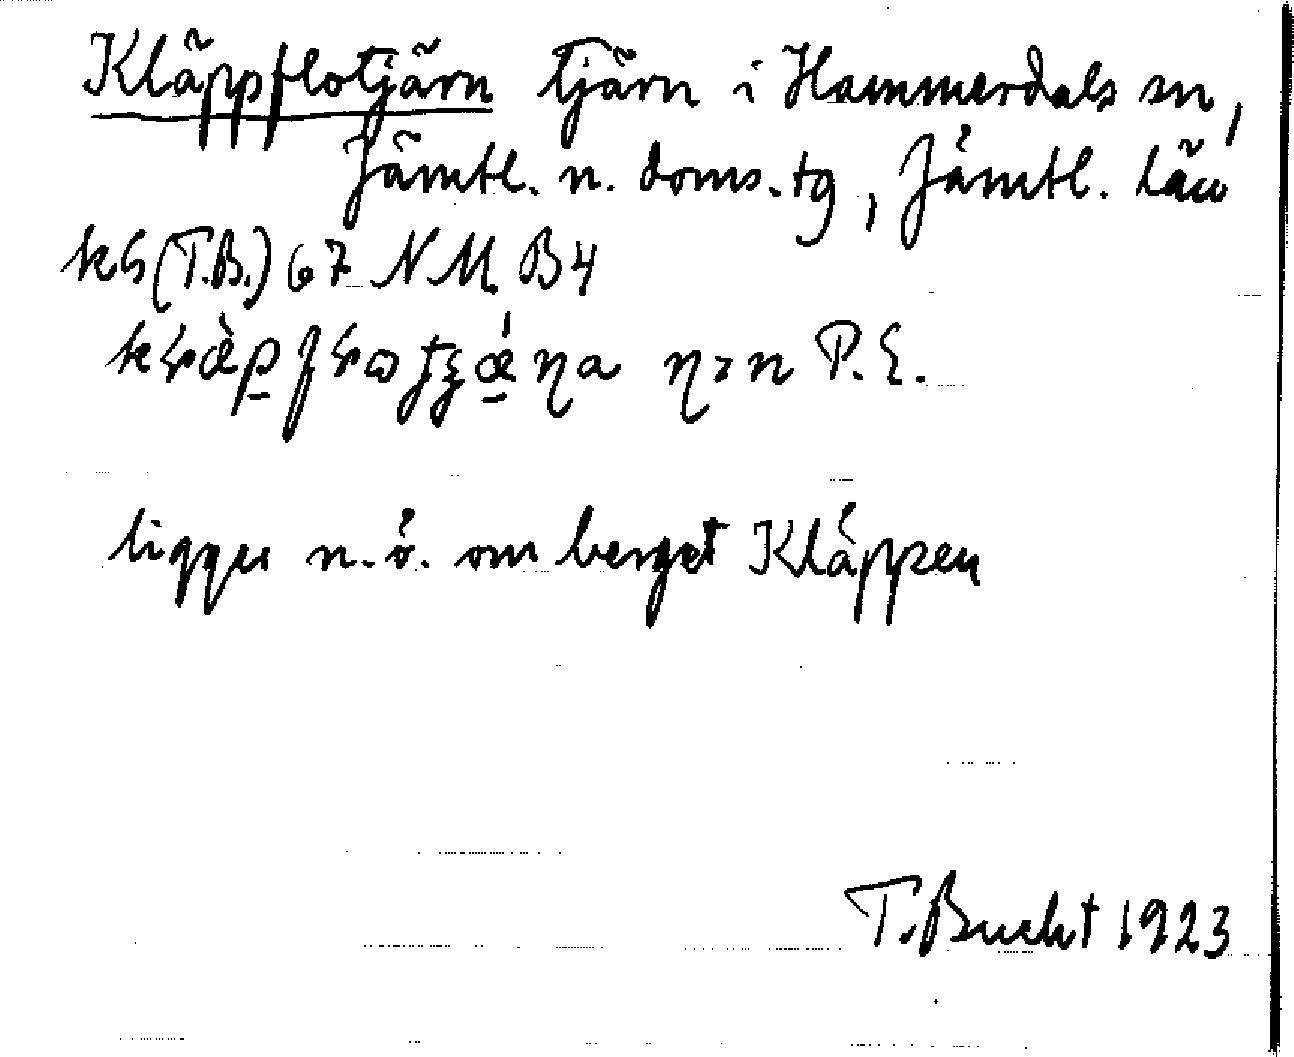 Kläppflotjärn tjärn i Hammerdals sn,
Jämtl. n. doms.tg, Jämtl. län
(T.B.) 67 NM. B4
P.E.
ligger n.ö. om berget Kläppen
T. Bucht 1923